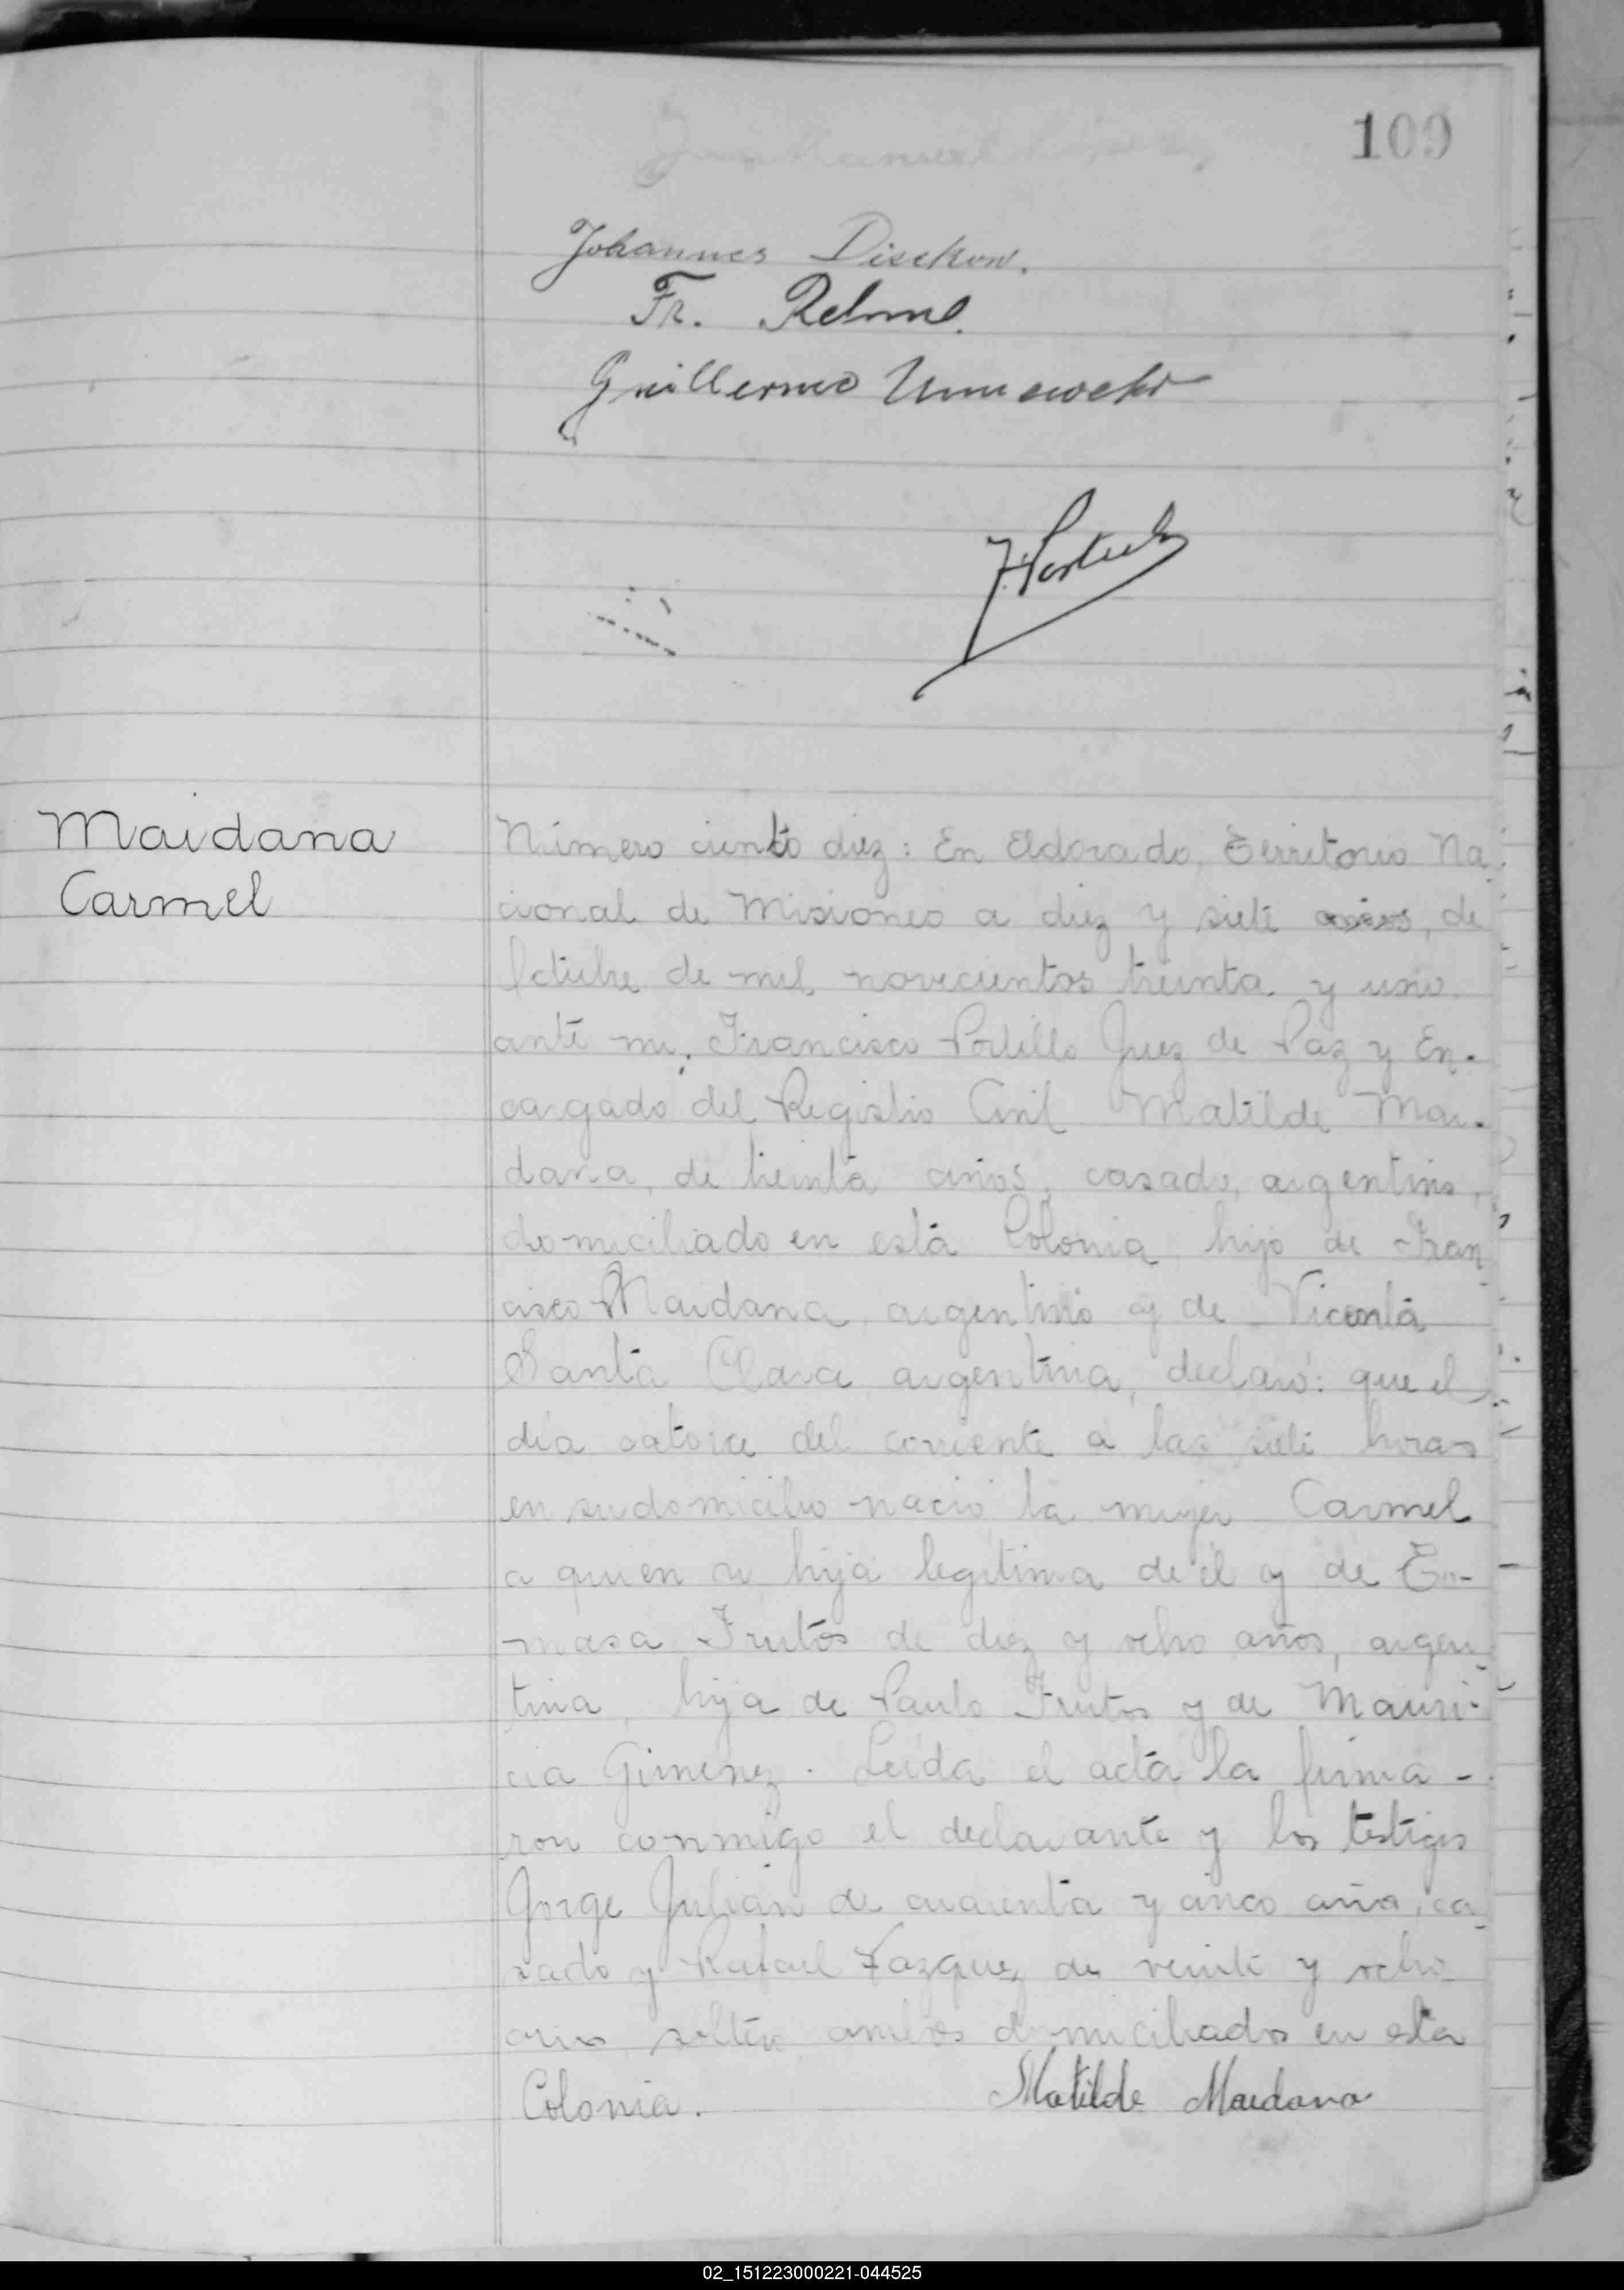 109
Johannes Dischow.
Fr. Rehme.
Guillermo Unnewehr
F. Portillo
Maidana
Carmel
Número ciento diez: En Eldorado, Territorio Na
cional de Misiones a diez y siete, de
Octubre de mil novecientos treinta y uno
ante mi, Francisco Portillo Juez de Paz y En-
cargado del Registro Civil Matilde Mai-
dana, de treinta años, casado, argentino,
domiciliado en esta Colonia, hijo de Fran
cisco Maidana, argentino y de Vicenta
Santa Clara argentina, declaró: que el
día catorce del corriente a las siete horas
en su domicilio nació la mujer Carmel
a quien su hija legítima de él y de To-
masa Frutos de diez y ocho años, argen
tina, hija de Paulo Frutos y de Mauri-
cia Gimenez. Leida el acta la firma-
ron conmigo el declarante y los testigos
Jorge Julian de cuarenta y cinco años, ca
sado y Rafael Vazquez de veinte y ocho
años soltero ambos domiciliados en esta
Colonia. Matilde Maidana
02_151223000221-044525